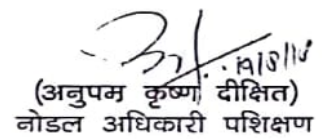 19/8/18
(अनुपम कृष्ण दीक्षित)
नोडल अधिकारी पशिक्षण